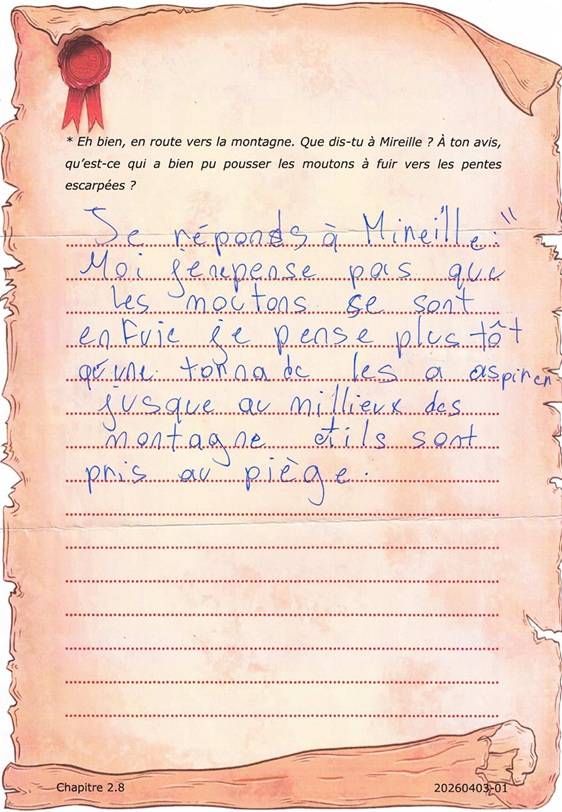 * Eh bien, en route vers la montagne. Que dis-tu à Mireille ? À ton avis,
qu'est-ce qui a bien pu pousser les moutons à fuir vers les pentes
escarpées ?
Je réponds à Mireille : "
Moi je ne pense pas que
les moutons se sont
enfuie je pense plus tôt
qu'une tornade les a aspirer
jusque au millieux des
montagne et ils sont
pris au piège.
Chapitre 2.8
20260403-01